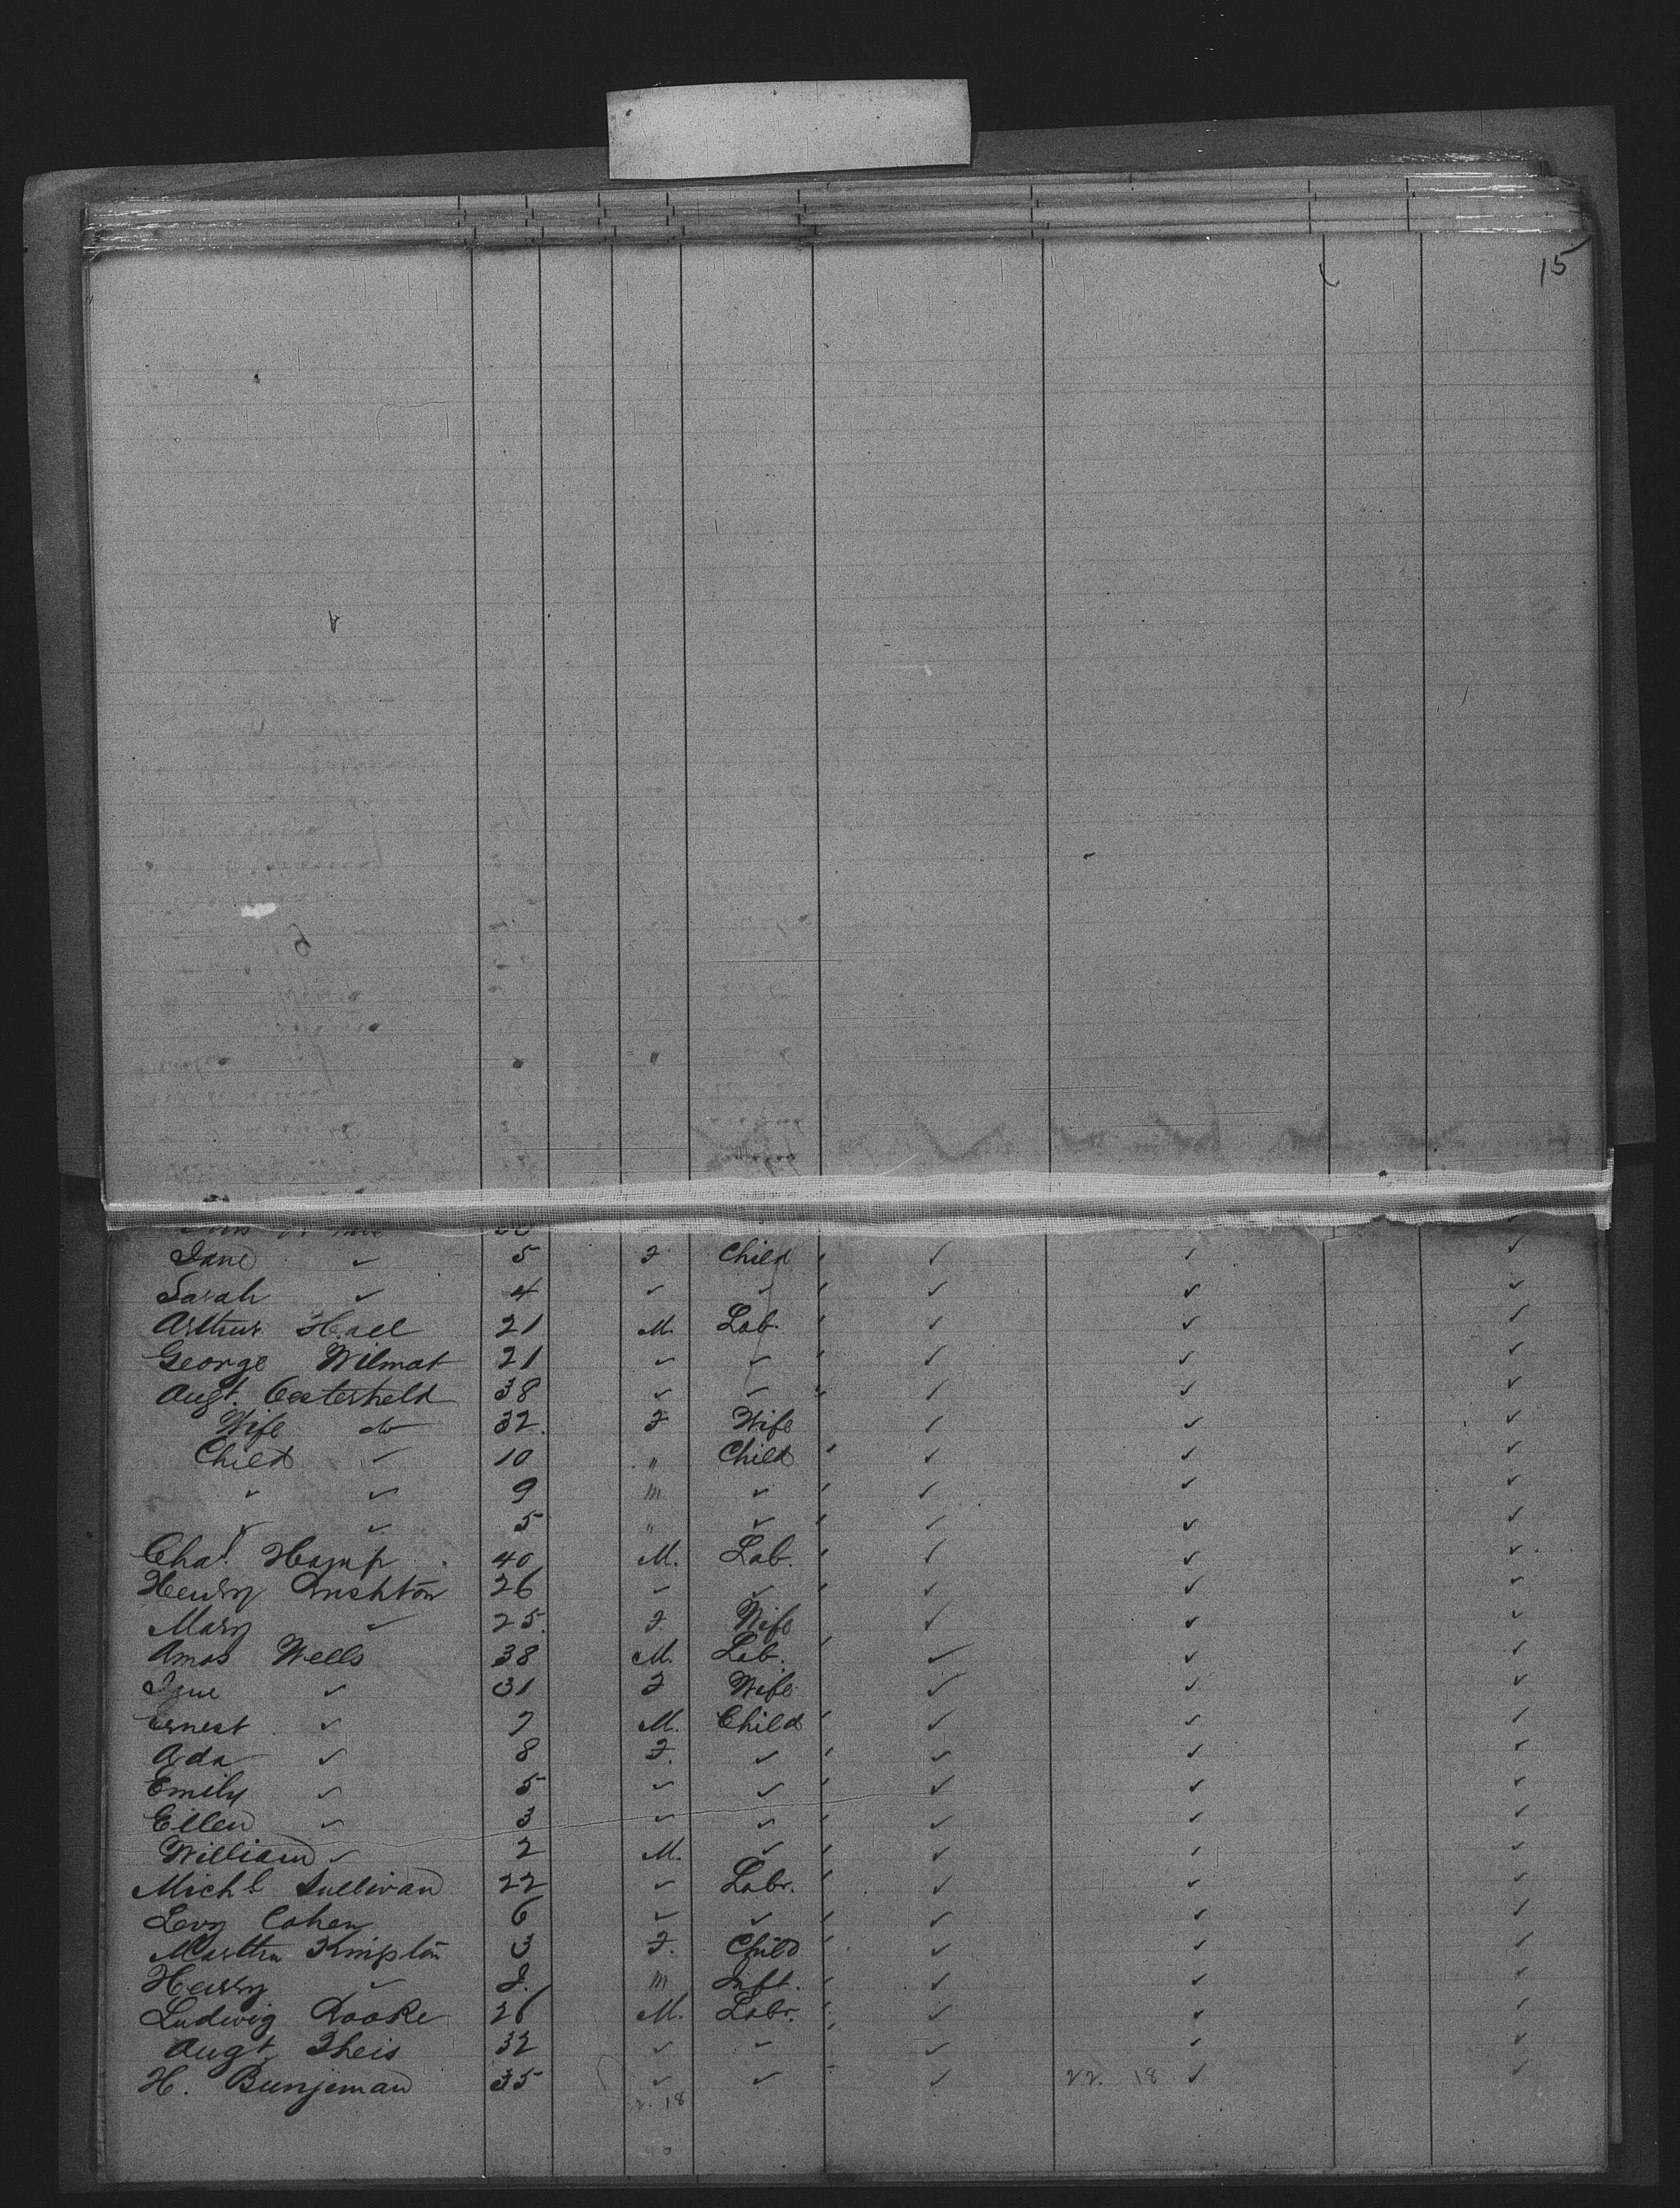 15
Jane ✓ 5 F Child ✓ ✓ ✓
Sarah ✓ 4 ✓ ✓ ✓ ✓ ✓
Arthur Hall 21 M. Lab. ✓ ✓ ✓
George Wilmat 21 ✓ ✓ ✓ ✓ ✓
Augt. Oesterheld 38 ✓ ✓ " ✓ ✓ ✓
Wife do 32. F Wife ✓ ✓ ✓
Child ✓ 10 " Child ✓ ✓ ✓
✓ ✓ 9 m ✓ ✓ ✓ ✓
✓ ✓ 5 " ✓ ✓ ✓ ✓
Chas. Hamp 40 M. Lab. ✓ ✓ ✓
Henry Rushton 26 ✓ ✓ ✓ ✓ ✓
Mary ✓ 25. F. Wife ✓ ✓ ✓
Amos Wells 38 M. Lab. ✓ ✓ ✓
✓ 31 F Wife ✓ ✓ ✓
Ernest ✓ 7 M. Child ✓ ✓ ✓
Ada ✓ 8 F. ✓ ✓ ✓ ✓
Emily ✓ 5 ✓ ✓ ✓ ✓ ✓
Ellen ✓ 3 ✓ ✓ ✓ ✓ ✓
William ✓ 2 M. ✓ ✓ ✓ ✓
Michl Sullivan 22 ✓ Labr. ✓ ✓ ✓
Levy Cohen 6 ✓ ✓ ✓ ✓ ✓
Martha Kimpton 3 F. Child ✓ ✓ ✓
Henry ✓ m Inft. ✓ ✓ ✓
Ludwig Rooke 26 M. Labr. ✓ ✓ ✓
Augt. Theis 32 ✓ ✓ ✓ ✓ ✓
H. Bunjeman 35 ✓ ✓ ✓ 22. 18 ✓ ✓
2. 18